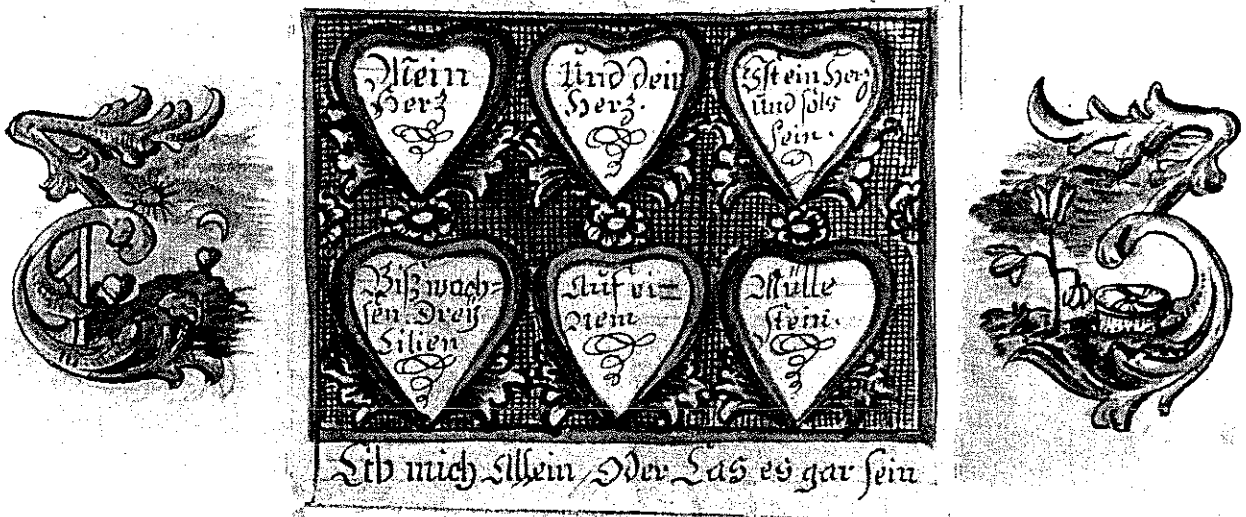 Mein
Herz
Und dein
Herz.
Ist ein Herz
Und sols
sein.
Biß wach=
sen Dreÿ
Lilien
Auf ei=
nem
Mülle
stein.
Lib mich Allein, Oder Las es gar sein